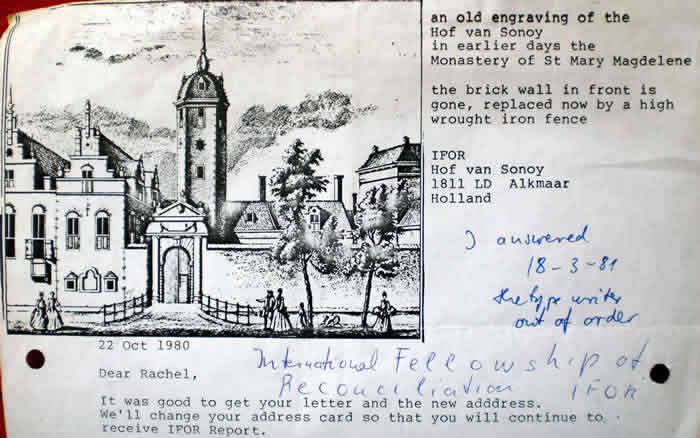 an old engraving of the
Hof van Sonoy
in earlier days the
Monastery of St Mary Magdelene
the brick wall in front is
gone, replaced now by a high
wrought iron fence
IFOR
Hof van Sonoy
1811 LD Alkmaar
Holland
I answered
18-3-81
the type writer
out of order
22 Oct 1980
International Fellowship of
Reconciliation IFOR
Dear Rachel,
It was good to get your letter and the new adddress.
We'll change your address card so that you will continue to
receive IFOR Report.